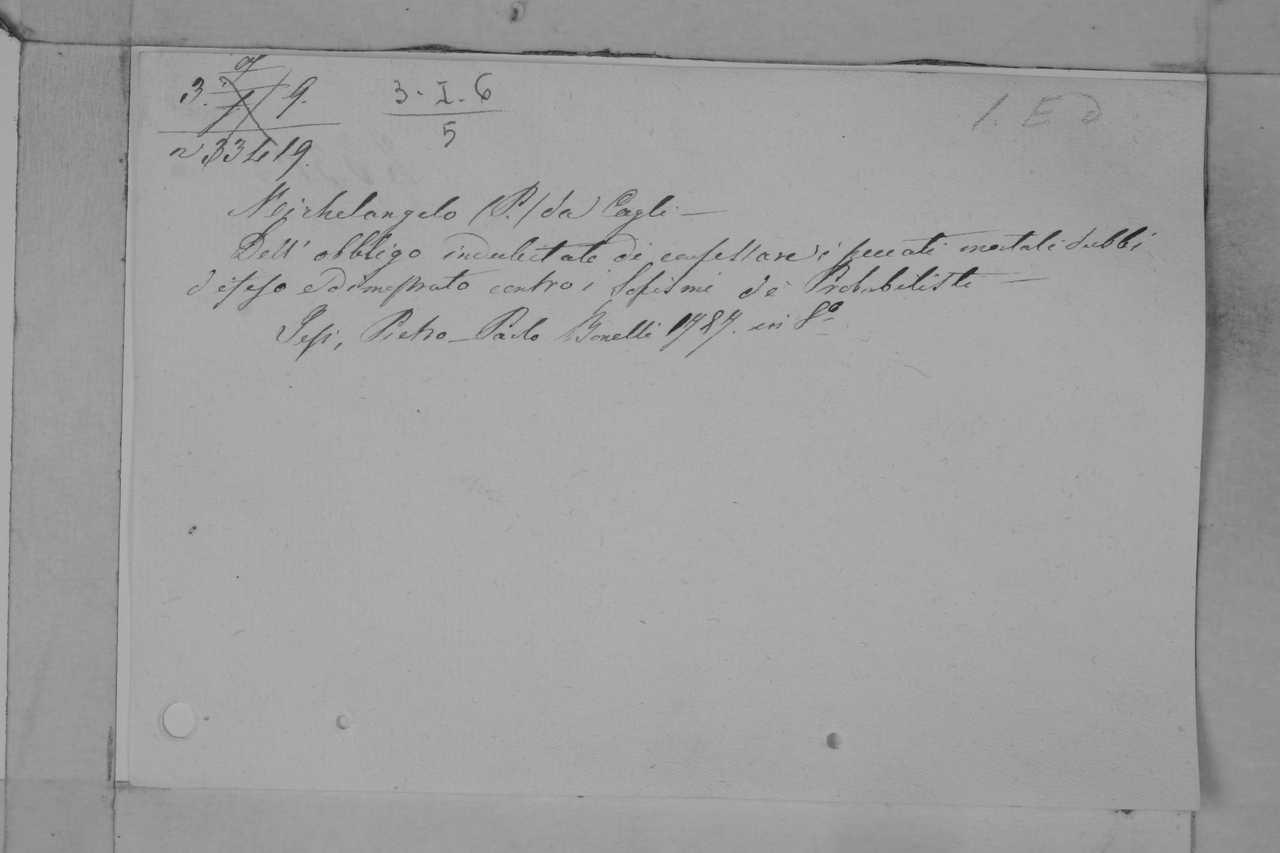 3. 9.
3. I. 6
5
1. Ed
n 33419.
Michelangelo (P.) da Cagli —
Dell' obbligo indubitato di confessare i peccati mortali dubbi
difeso e dimostrato contro i sofismi de' Probabilisti —
Jesi, Pietro-Paolo Bonelli 1787. in 8º